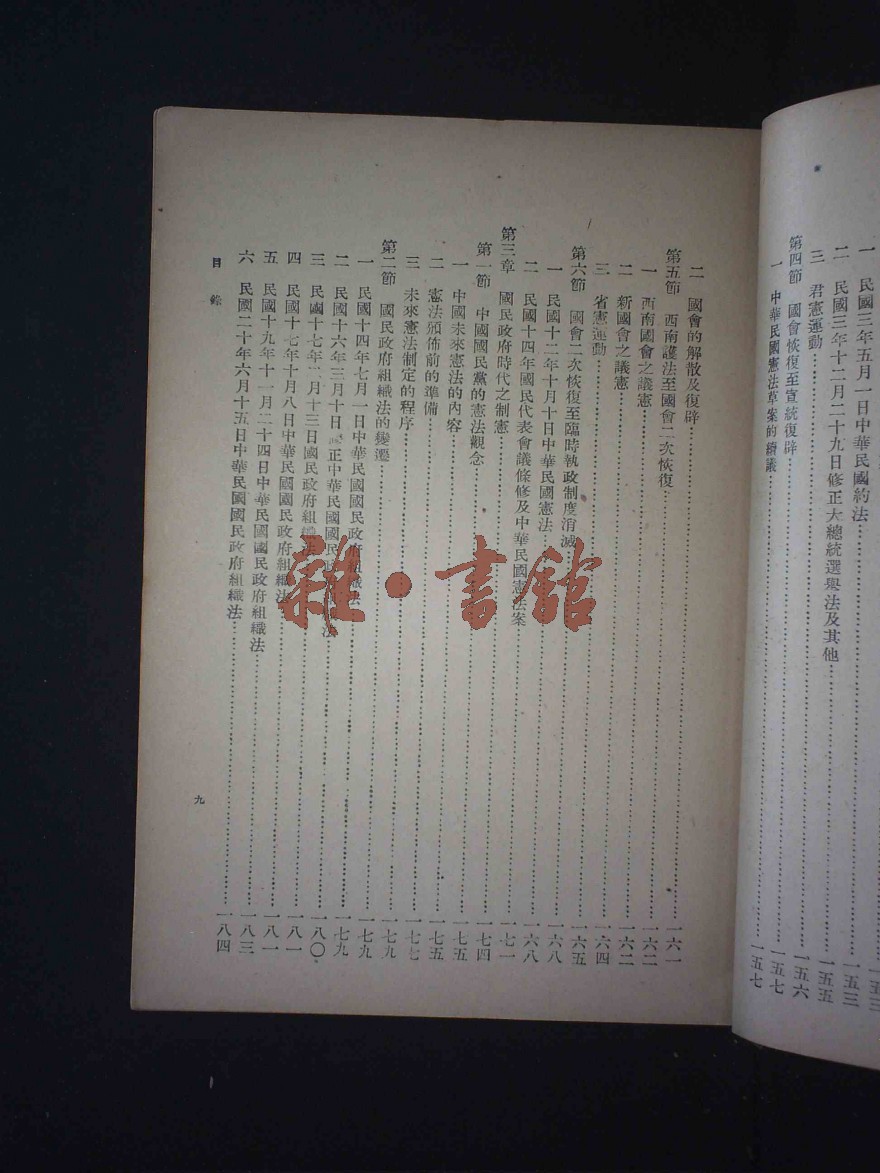 一　民國三年五月一日中華民國約法……一五三
二　民國三年十二月二十九日修正大總統選舉法及其他……一五五
三　君憲運動……一五六
第四節　國會恢復至宣統復辟……一五七
一　中華民國憲法草案的續議……一五七
二　國會的解散及復辟……一六一
第五節　西南護法至國會二次恢復……一六二
一　西南國會之議憲……一六二
二　新國會之議憲……一六四
三　省憲運動……一六五
第六節　國會二次恢復至臨時執政制度消滅……一六八
一　民國十二年十月十日中華民國憲法……一六八
二　民國十四年國民代表會議條修及中華民國憲法案……一七一
第三章　國民政府時代之制憲……一七四
第一節　中國國民黨的憲法觀念……一七五
一　中國未來憲法的內容……一七五
二　憲法頒佈前的準備……一七七
三　未來憲法制定的程序……一七九
第二節　國民政府組織法的變遷……一七九
一　民國十四年七月一日中華民國國民政府組織法……一七九
二　民國十六年三月十日修正中華民國國民政府組織法……一八〇
三　民國十七年二月十三日國民政府組織法……一八一
四　民國十七年十月八日中華民國國民政府組織法……一八一
五　民國十九年十一月二十四日中華民國國民政府組織法……一八三
六　民國二十年六月十五日中華民國國民政府組織法……一八四
目錄
九
雜·書館